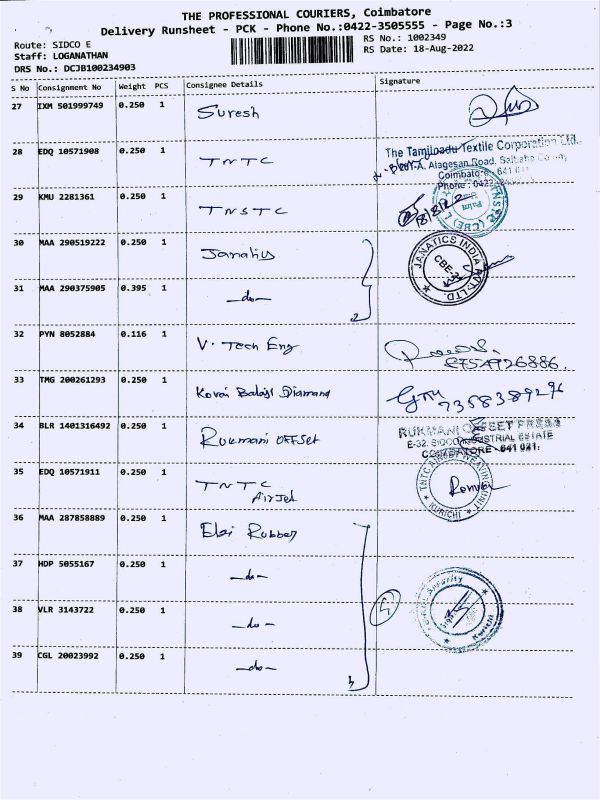 THE PROFESSIONAL COURIERS, Coimbatore
Delivery Runsheet - PCK - Phone No.:0422-3505555 - Page No.:3
Route: SIDCO E
RS No.: 1002349
Staff: LOGANATHAN
RS Date: 18-Aug-2022
DRS No.: DCJB100234903
S No Consignment No Weight PCS Consignee Details Signature
27 IXM 501999749 0.250 1 Suresh
28 EDQ 10571908 0.250 1 TNTC
The Tamilnadu Textile Corporation Ltd.,
Alagesan Road, Saibaba Colony
Coimbatore - 641 011
Phone : 0422
29 KMU 2281361 0.250 1 TNSTC
18/8/22
30 MAA 290519222 0.250 1 Janatics
JANATICS INDIA PVT. LTD.
CBE-
31 MAA 290375905 0.395 1 -do-
2
32 PYN 8052884 0.116 1 V. Tech Eng
8754926886.
33 TMG 200261293 0.250 1 Kovai Balaji Diamond
7358389296
34 BLR 1401316492 0.250 1 Rukmani OFFset
RUKMANI OFFSET PRESS
E-32, SIDCO INDUSTRIAL ESTATE
COIMBATORE - 641 021.
35 EDQ 10571911 0.250 1 TNTC
Airjet
TNTC AIRJET WEAVING UNIT
KURICHI
36 MAA 287858889 0.250 1 Elgi Rubber
37 HDP 5055167 0.250 1 -do-
38 VLR 3143722 0.250 1 -do-
Security
Kurichi
39 CGL 20023992 0.250 1 -do-